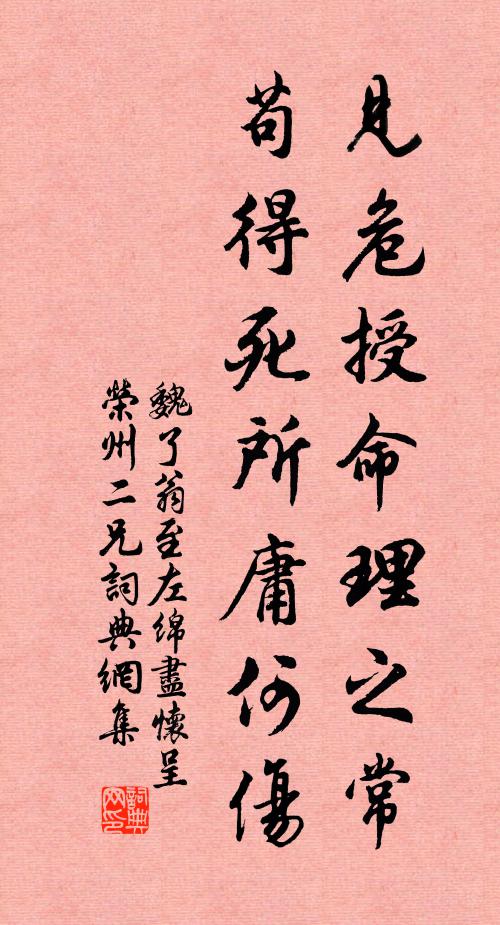 見危授命理之常
苟得死所庸何傷
魏了翁至左綿盡懷呈
榮州二兄詞典網集
詞典网印